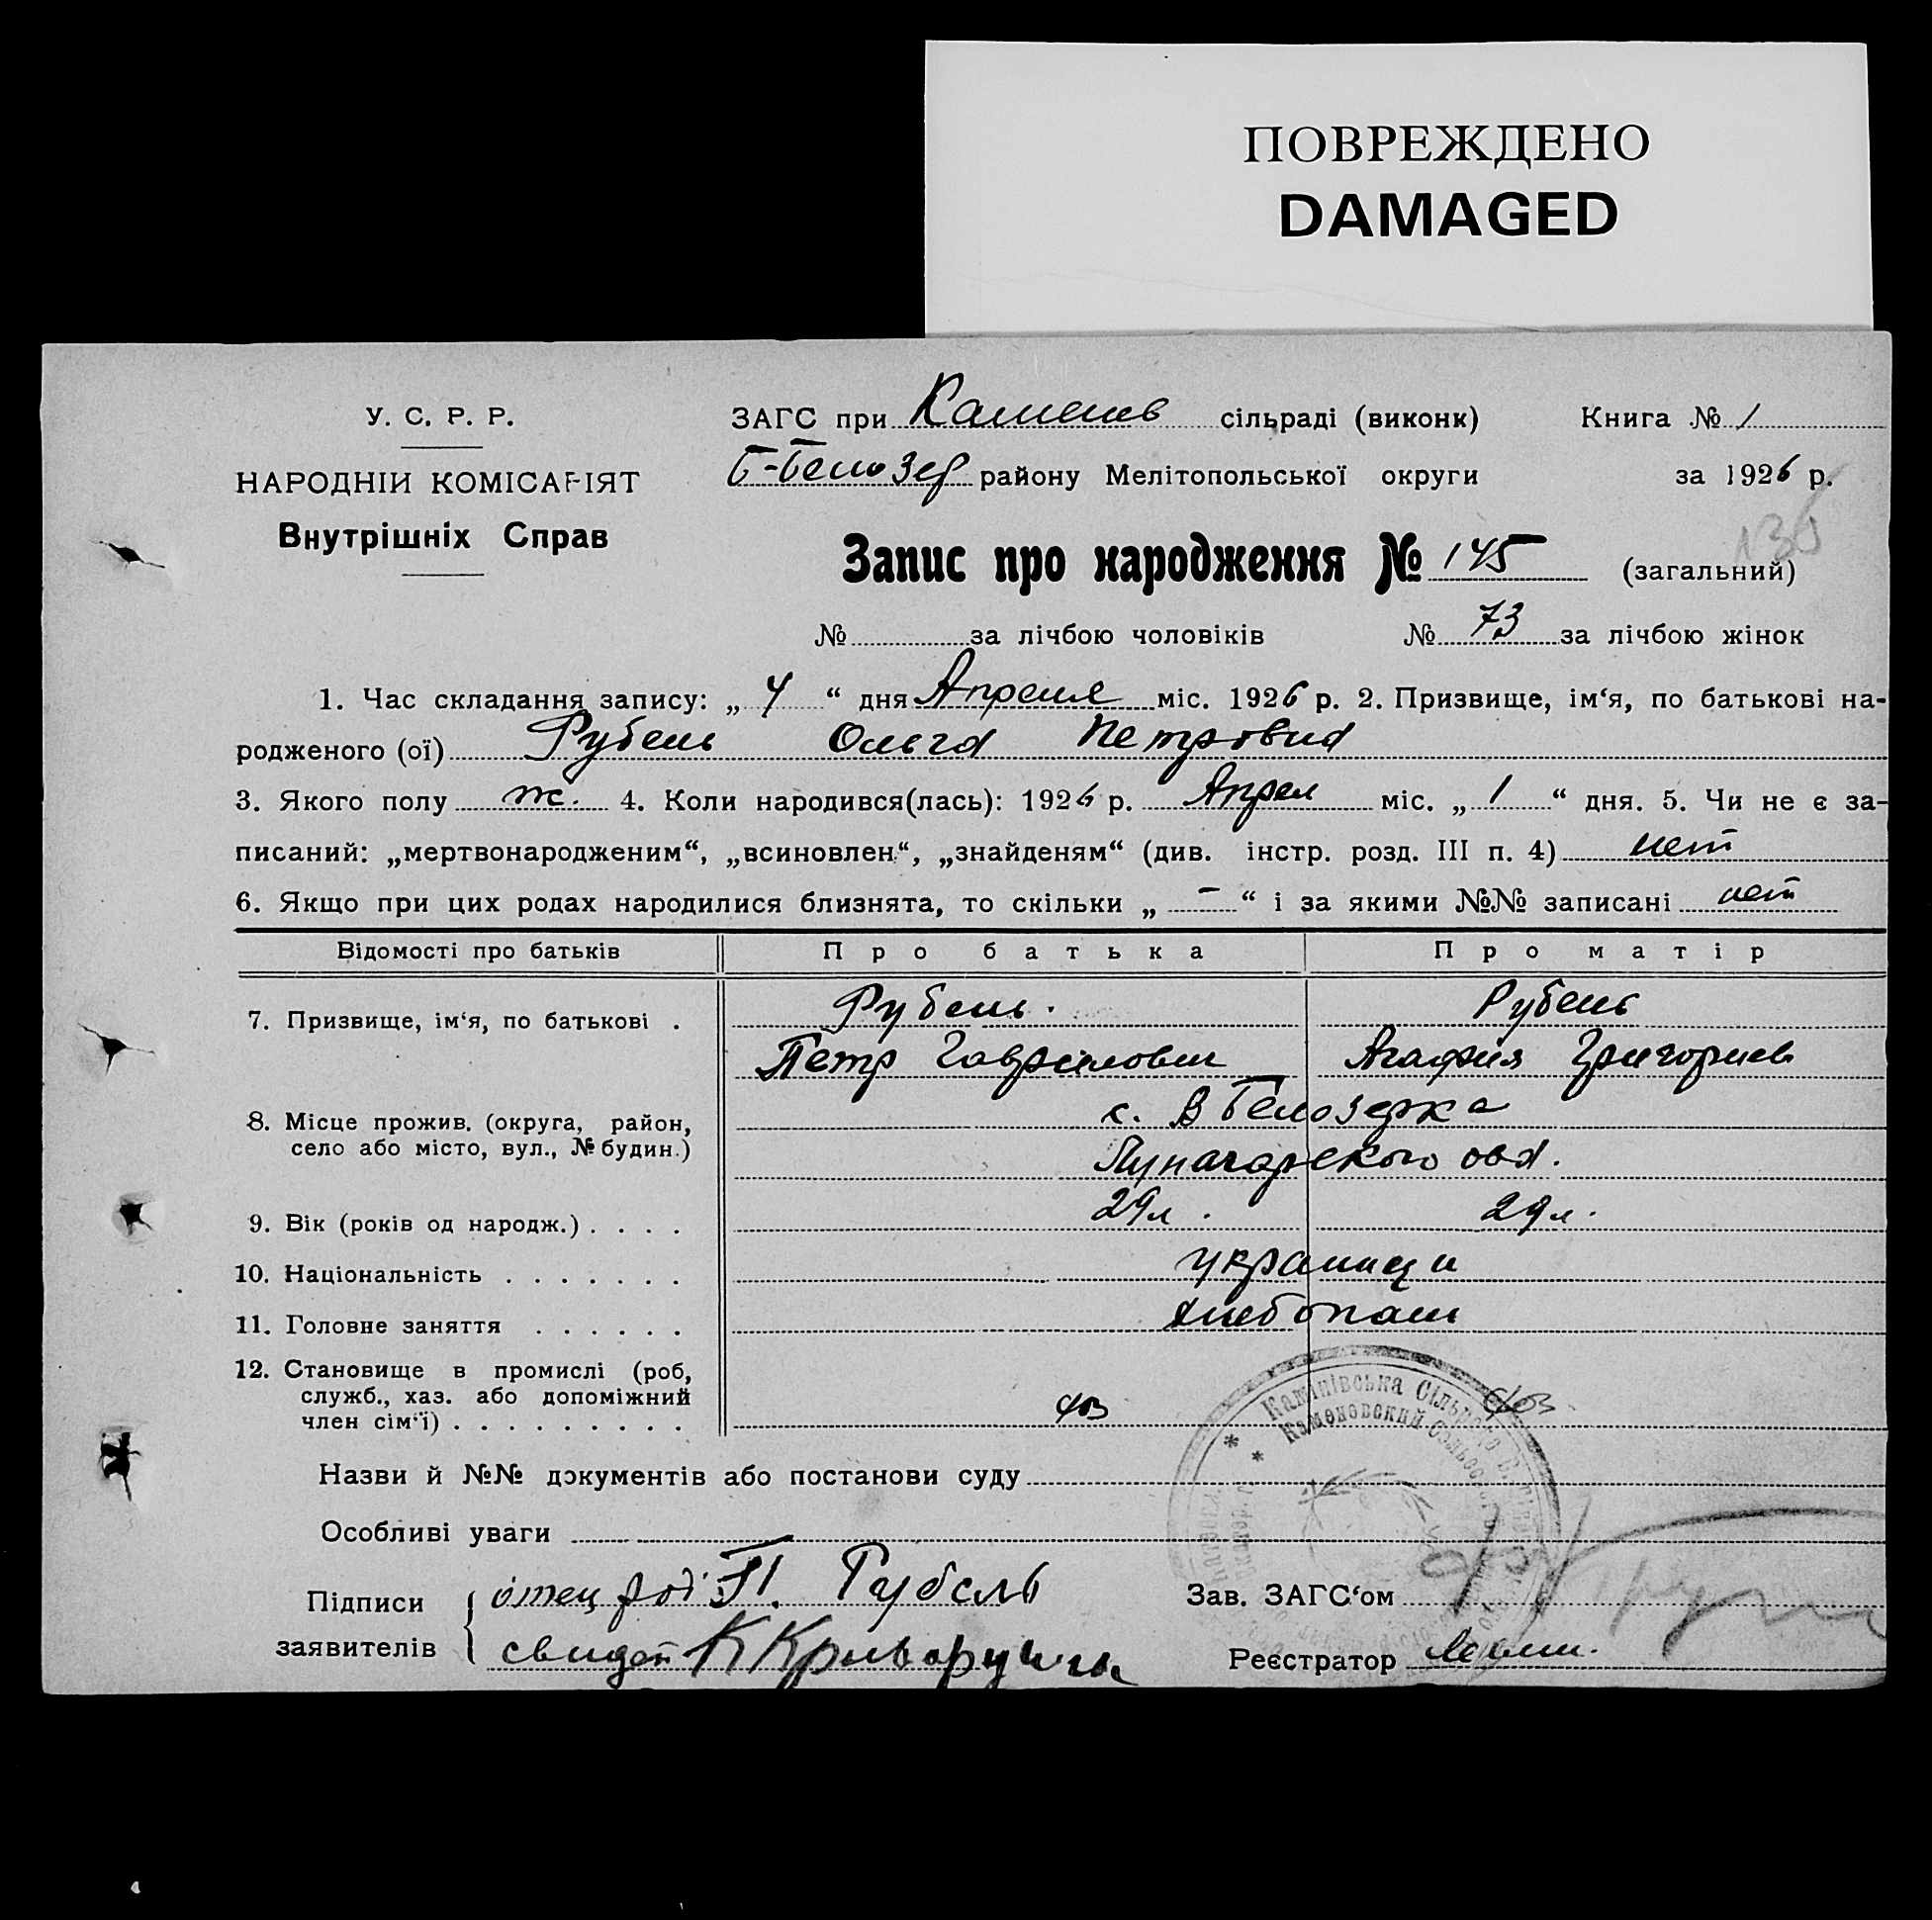 ПОВРЕЖДЕНО
DAMAGED
У. С. Р. Р.
НАРОДНІЙ КОМІСАРІЯТ
Внутрішніх Справ
ЗАГС при Каменев сільраді (виконк) Книга № 1
Б-Белозер району Мелітопольської округи за 1926 р.
136
Запис про народження № 145 (загальний)
№ за лічбою чоловіків № 73 за лічбою жінок
1. Час складання запису: „ 4 “ дня Апреля міс. 1926 р. 2. Призвище, ім‘я, по батькові на-
родженого (ої) Рубель Ольга Петровна
3. Якого полу ж. 4. Коли народився(лась): 1926 р. Апрел міс. „ 1 “ дня. 5. Чи не є за-
писаний: „мертвонародженим“, „всиновлен.“, „знайденям“ (див. інстр. розд. III п. 4) нет
6. Якщо при цих родах народилися близнята, то скільки „ – “ і за якими №№ записані нет
Відомості про батьків Про батька Про матір
7. Призвище, ім‘я, по батькові . Рубель. Рубель
Петр Гаврилович Агафия Григориев
8. Місце прожив. (округа, район, село або місто, вул., № будин.) с. В Белозерка
9. Вік (років од народж.) . . . . 29 л. 29 л.
10. Національність . . . . . . . украинци
11. Головне заняття . . . . . . хлебопаш
12. Становище в промислі (роб, служб., хаз. або допоміжний член сім‘ї) . . . . . . . . .
Камінівська Сільрада
Каменовский Сельсовет
Назви й №№ документів або постанови суду
Особливі уваги
Підписи заявителів
отец П. Рубель
свидет К Криворучко
Зав. ЗАГС‘ом
Реєстратор